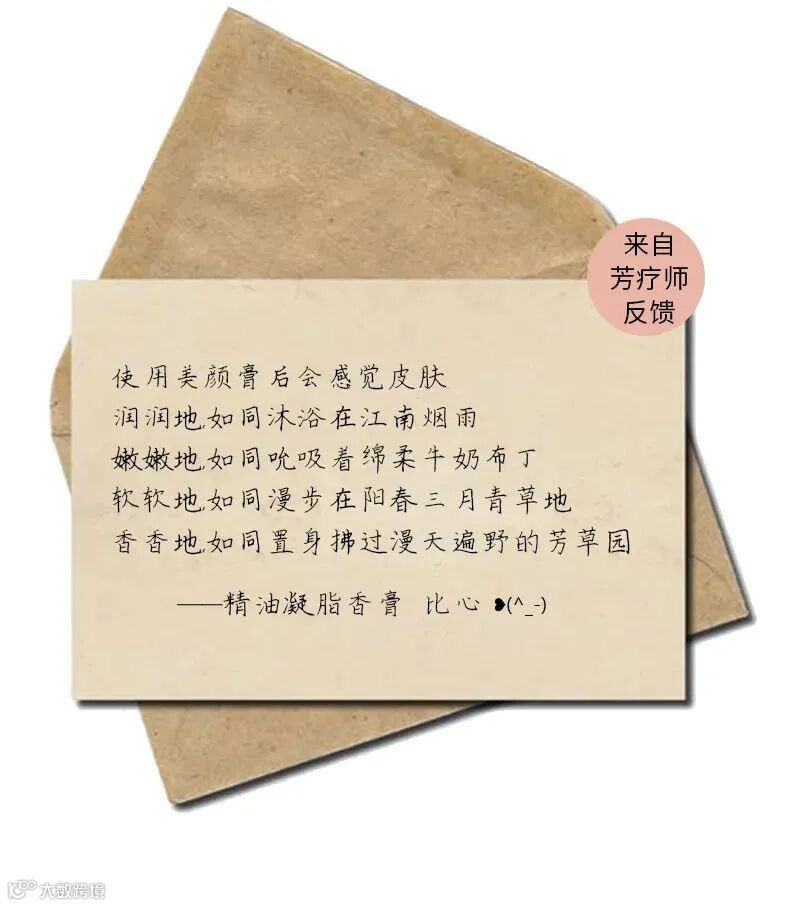 来自
芳疗师
反馈
使用美颜膏后会感觉皮肤
润润地,如同沐浴在江南烟雨
嫩嫩地,如同吮吸着绵柔牛奶布丁
软软地,如同漫步在阳春三月青草地
香香地,如同置身拂过漫天遍野的芳草园
——精油凝脂香膏 比心 ❥(^_-)
大数跨境